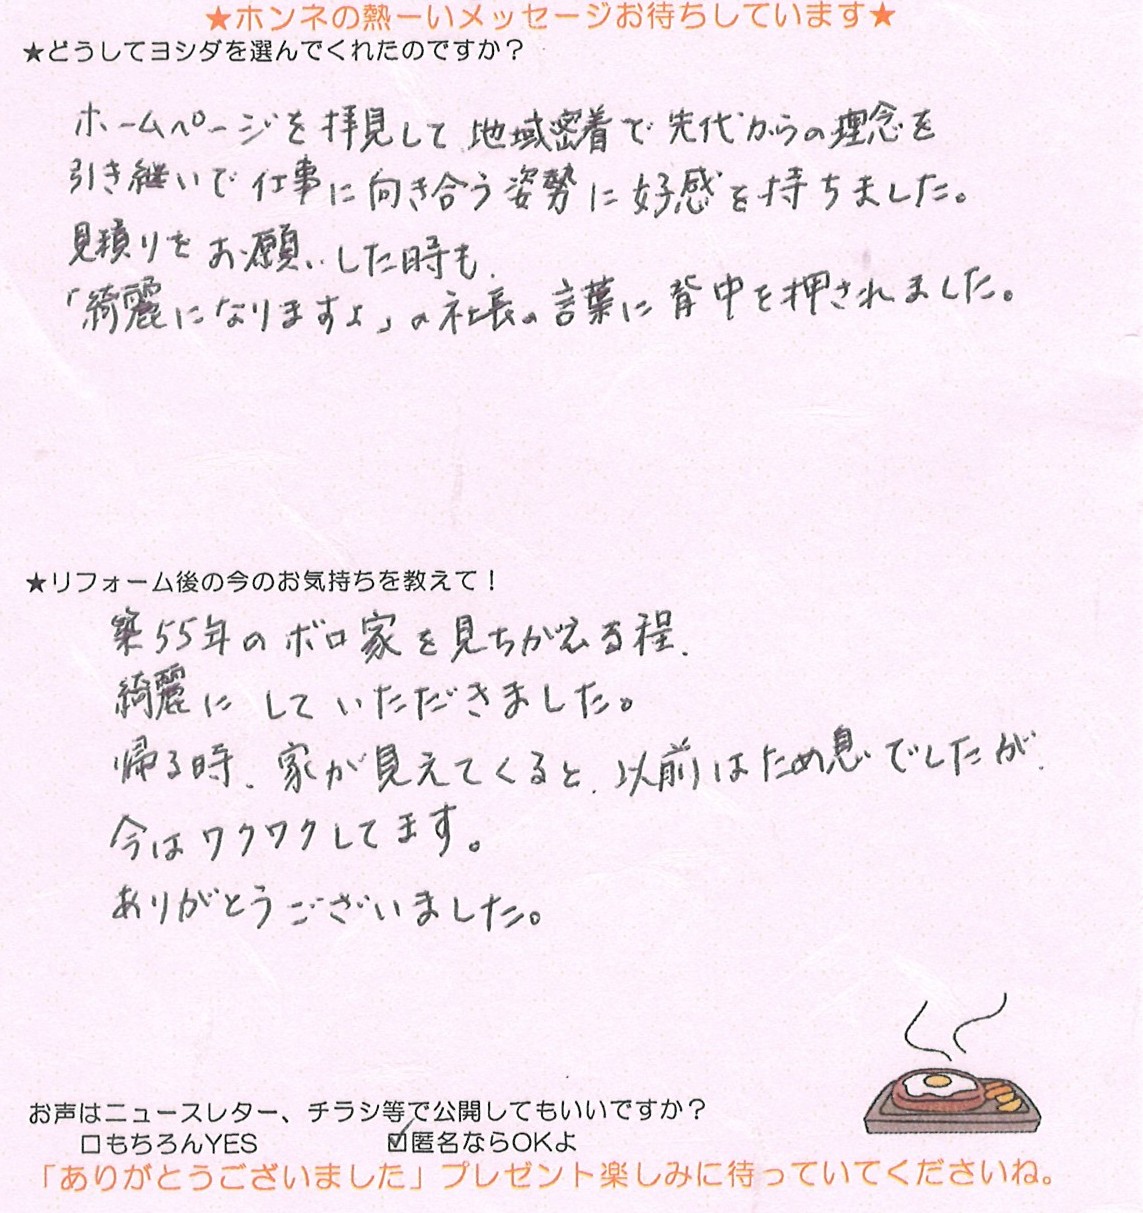 ★ホンネの熱ーいメッセージお待ちしています★
★どうしてヨシダを選んでくれたのですか？
ホームページを拝見して地域密着で先代からの理念を
引き継いで仕事に向き合う姿勢に好感を持ちました。
見積りをお願いした時も、
「綺麗になりますよ」の社長の言葉に背中を押されました。
★リフォーム後の今のお気持ちを教えて！
築55年のボロ家を見ちがえる程、
綺麗にしていただきました。
帰る時、家が見えてくると、以前はため息でしたが、
今はワクワクしてます。
ありがとうございました。
お声はニュースレター、チラシ等で公開してもいいですか？
□もちろんYES ☑匿名ならOKよ
「ありがとうございました」プレゼント楽しみに待っていてくださいね。